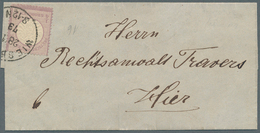 Herrn
Rechtsanwalt Travers
Hier
6